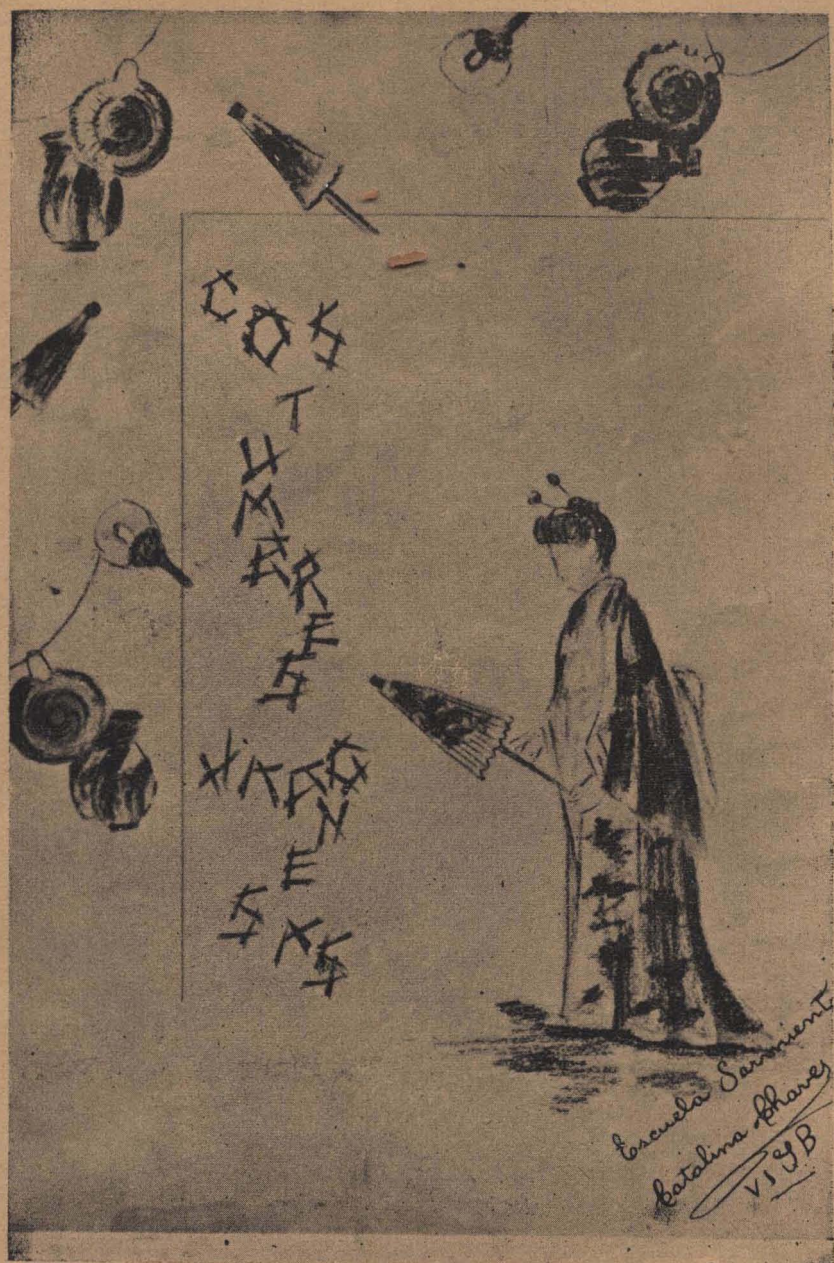 COSTUMBRES
JAPONESAS
Escuela Sarmiento
Catalina Chaves
VI G B